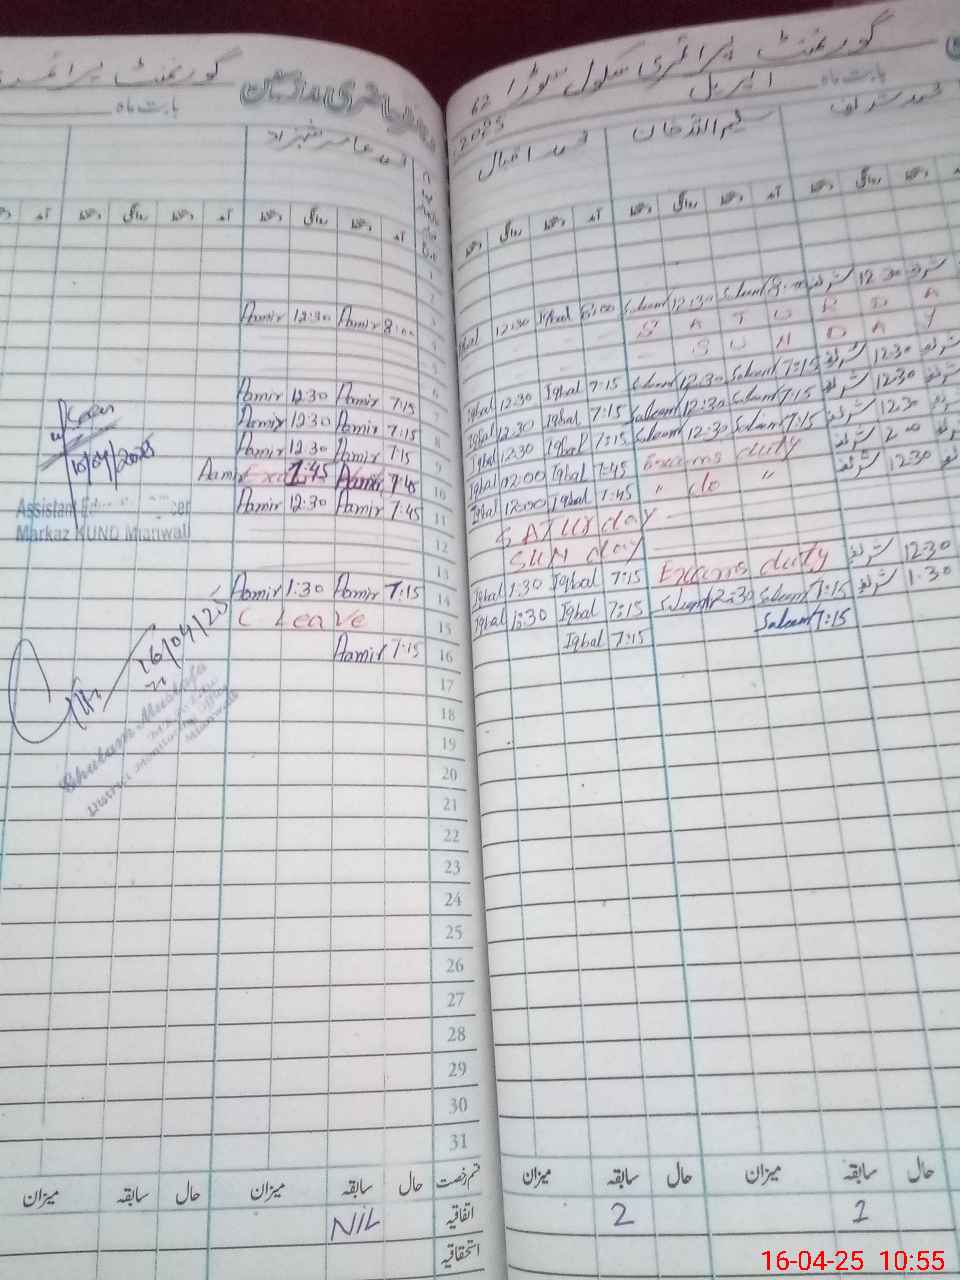 گورنمنٹ پرائمری سکول تورڑا 62
بابت ماہ اپریل 2025
محمد شریف سلیم اللہ خان محمد اقبال
آمد دستخط روانگی دستخط آمد دستخط روانگی دستخط
Iqbal 12:30 Iqbal 8:00 Saleem 12:30 Saleem شریف 12:30 شریف
S A T U R D A Y
S U N D A Y
Iqbal 12:30 Iqbal 7:15 Saleem 12:30 Saleem 7:15 شریف 12:30 شریف
Iqbal 12:30 Iqbal 7:15 Saleem 12:30 Saleem 7:15 شریف 12:30 شریف
Iqbal 12:30 Iqbal 7:15 Saleem 12:30 Saleem 7:15 شریف 12:30
Iqbal 12:00 Iqbal 7:45 Exams duty شریف 2:00
Iqbal 12:00 Iqbal 7:45 " do " شریف 12:30
SATURday
SUN day
Iqbal 1:30 Iqbal 7:15 Exams duty شریف 12:30
Iqbal 1:30 Iqbal 7:15 Saleem 12:30 Saleem 7:15 شریف 1:30
Iqbal 7:15 Saleem 7:15
حال سابقہ میزان حال سابقہ میزان
1 2
گورنمنٹ پرائمری
بابت ماہ
محمد عامر شہزاد
آمد دستخط روانگی دستخط آمد دستخط روانگی دستخط آمد
1
2
3 Aamir 12:30 Aamir 8:00
4
5
6 Aamir 12:30 Aamir 7:15
7 Aamir 12:30 Aamir 7:15
8 Aamir 12:30 Aamir 7:15
9 Aamir 1:45 Aamir 7:45
10 Aamir 12:30 Aamir 7:45
11
12
13
14 Aamir 1:30 Aamir 7:15
15 C Leave
16 Aamir 7:15
17
18
19
20
21
22
23
24
25
26
27
28
29
30
31
10/04/2025
Assistant
Markaz KUND Mianwali
16/04/25
Ghulam Mustafa
Mianwali
قسم رخصت حال سابقہ میزان حال سابقہ میزان
اتفاقیہ NIL
استحقاقیہ
16-04-25 10:55